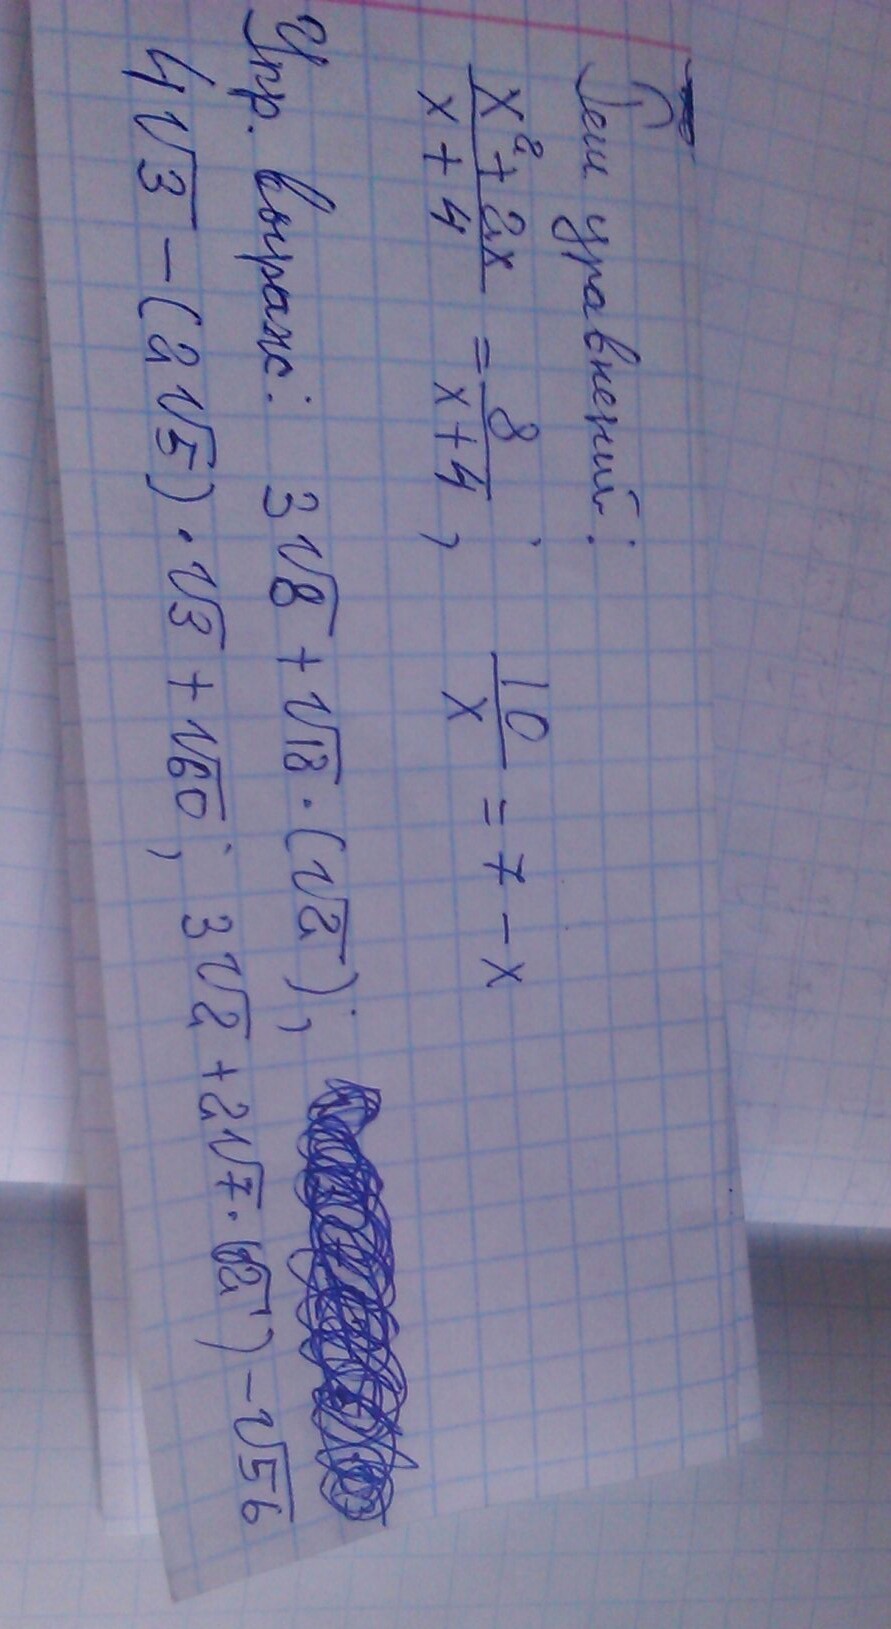 Реш уравнений:
x²+2x/x+4 = 8/x+4; 10/x = 7-x
Упр. выраж: 3√8+√18·(√2);
4√3-(2√5)·√3+√60; 3√2+2√7·√2)-√56